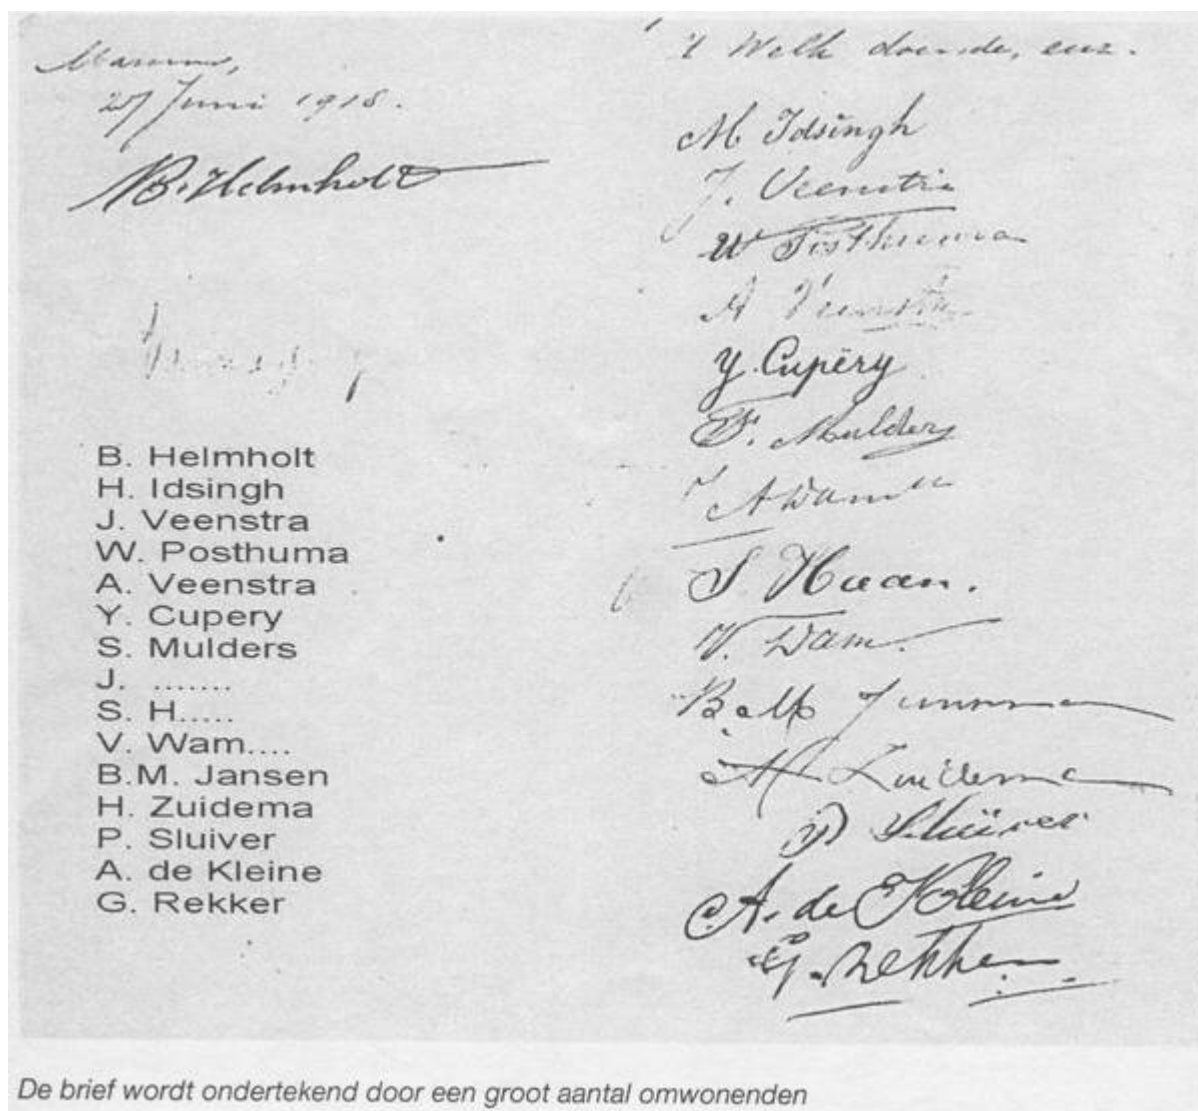 Marum,
27 Juni 1918.
B. Helmholt
't Welk doende, enz.
M Idsingh
J. Veenstra
W Posthuma
A Veenstra
Y. Cupĕry
F. Mulders
S. Haan.
V. Dam.
B. M.
H Zuidema
P Sluiver
A. de Kleine
G. Rekker
B. Helmholt
H. Idsingh
J. Veenstra
W. Posthuma
A. Veenstra
Y. Cupery
S. Mulders
J. .......
S. H.....
V. Wam....
B.M. Jansen
H. Zuidema
P. Sluiver
A. de Kleine
G. Rekker
De brief wordt ondertekend door een groot aantal omwonenden